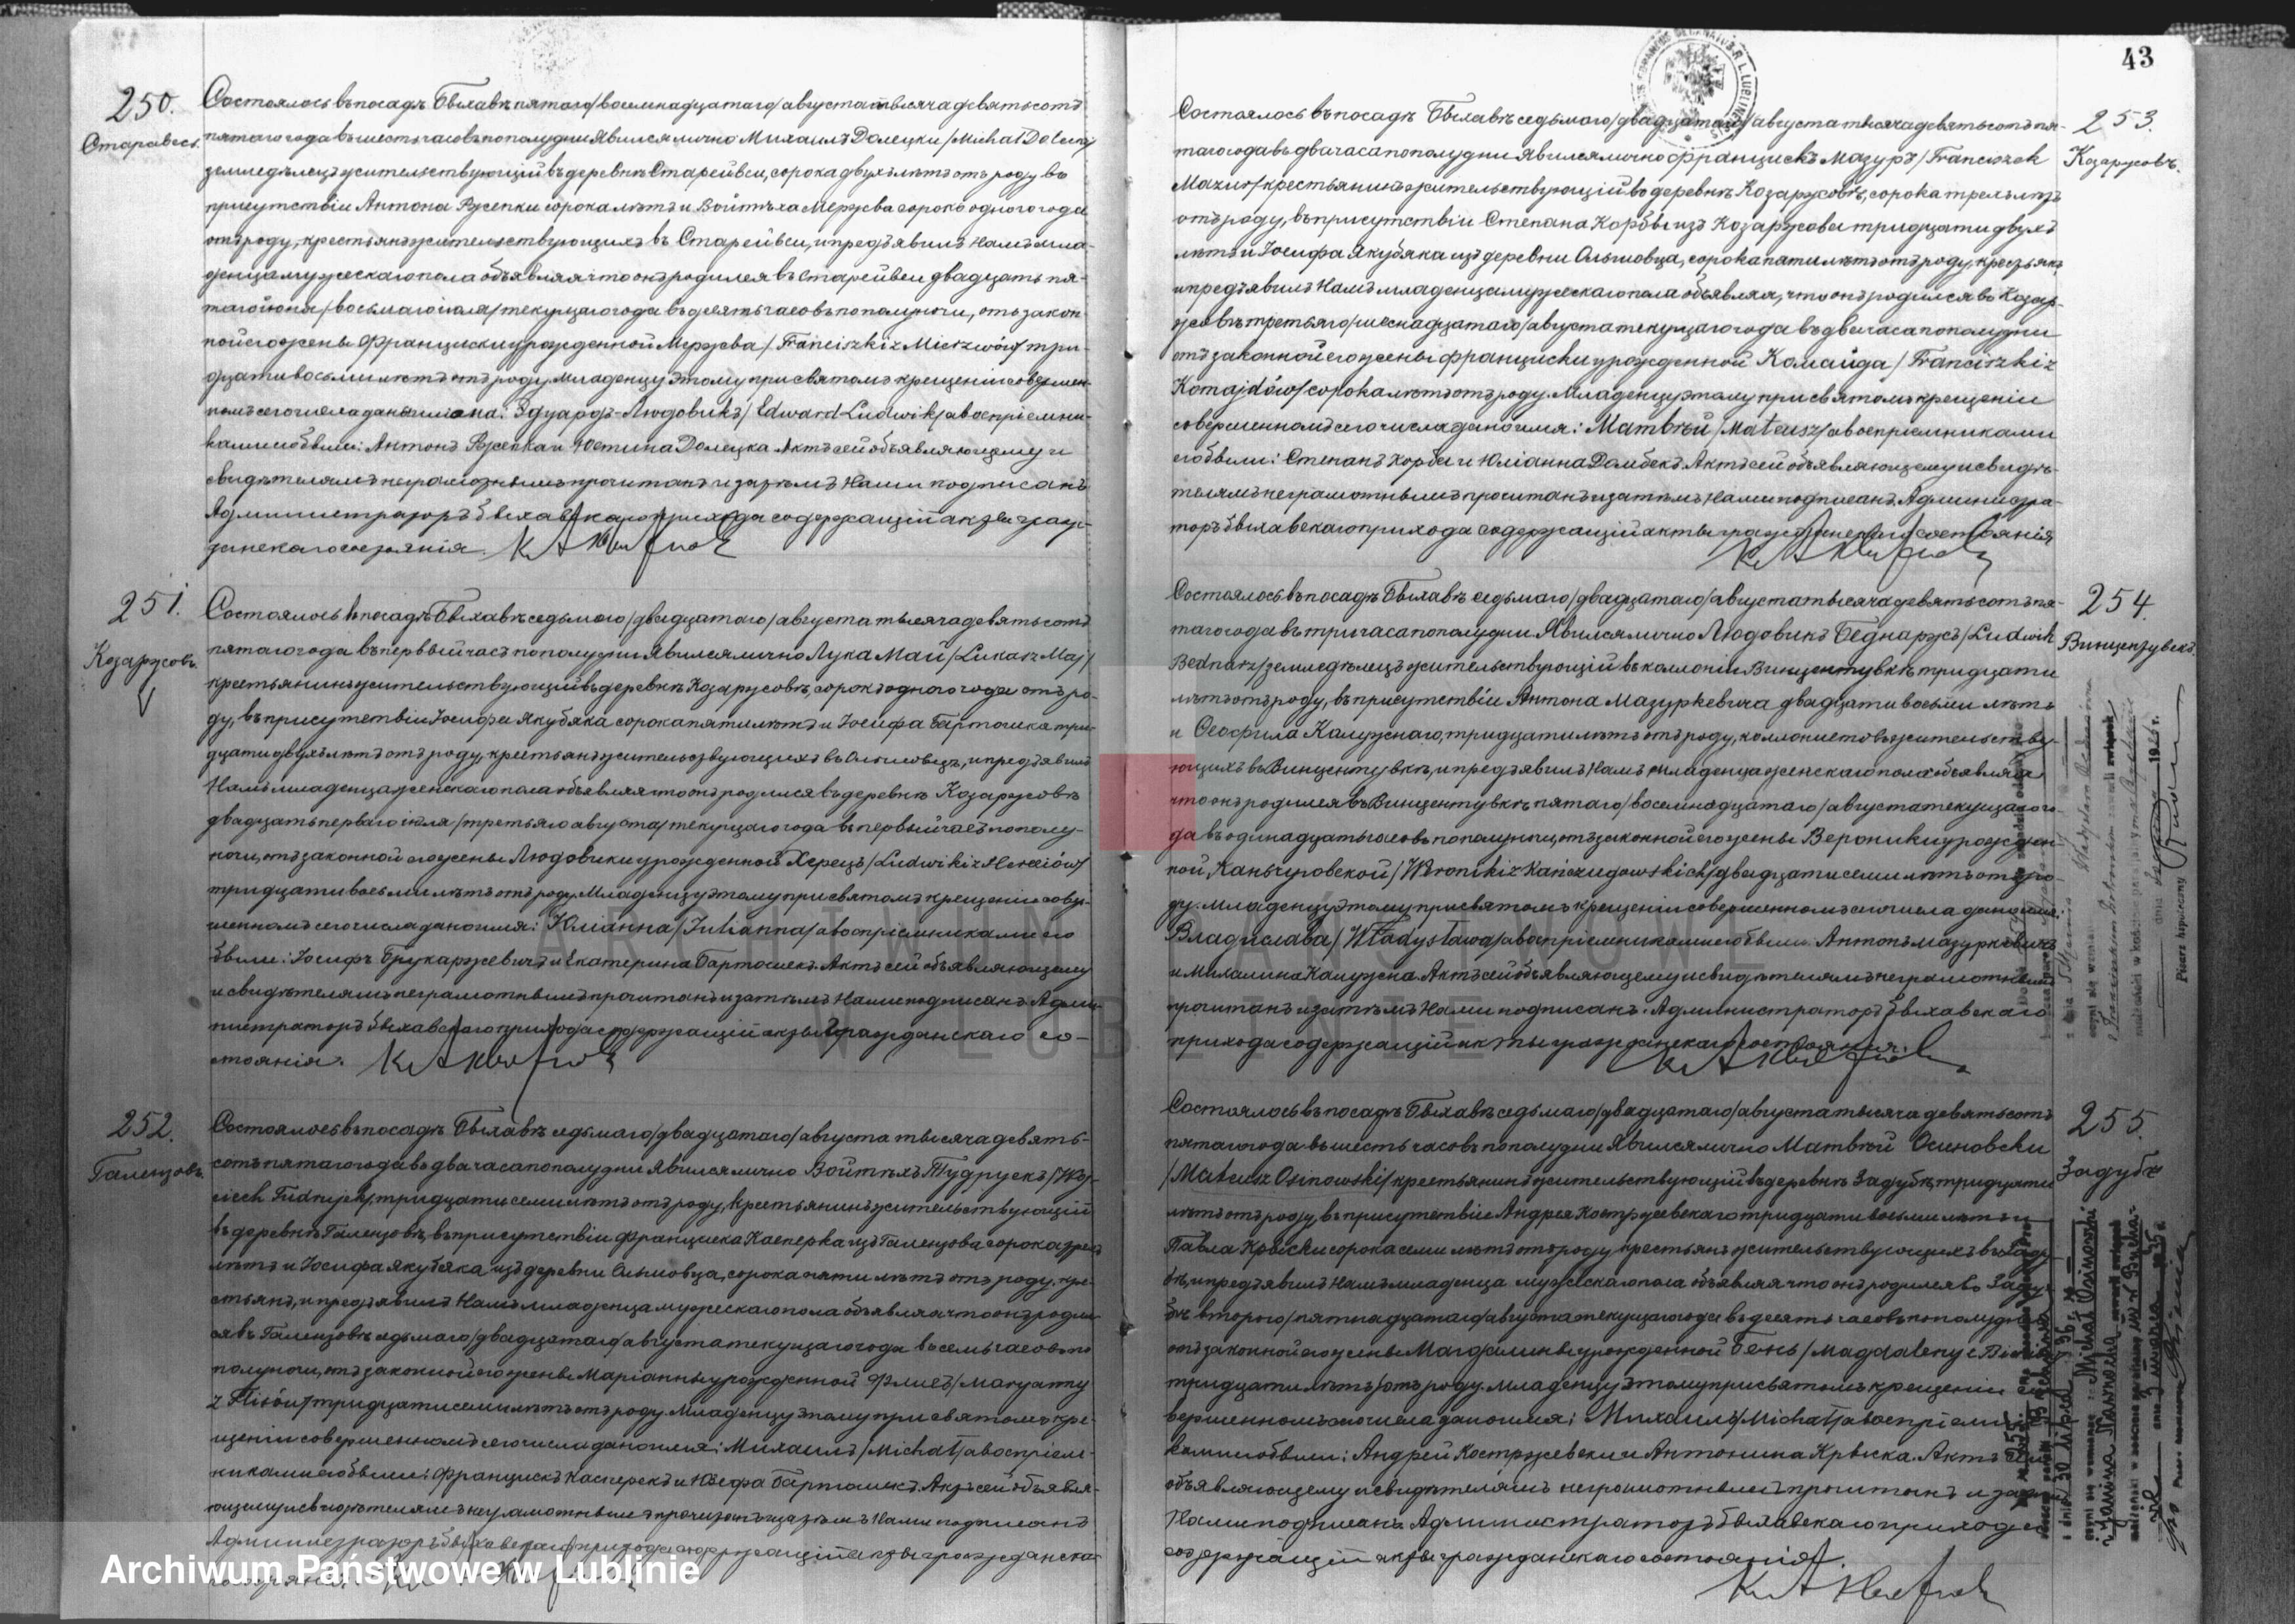 250.
Старавесь.
Состоялось въ посадѣ Быхавѣ пятаго /восемнадцатаго/ августа тысяча девятьсотъ
пятаго года въ шесть часовъ пополудни. Явился лично Михаилъ Долецки /Michał Dolecki/
земледѣлецъ жительствующій въ деревнѣ Старейвси, сорока двухъ лѣтъ отъ роду въ
присутствіи Антона Рженпки сорока лѣтъ и Войтѣха Мержва сорока одного года
отъ роду, крестьянъ жительствующихъ въ Старейвси, и предъявилъ Намъ мла-
денца мужескаго пола объявляя что онъ родился въ Старейвси двадцать пя-
таго іюня /восьмаго іюля/ текущаго года въ десять часовъ пополуночи, отъ закон-
ной его жены Францишки урожденной Мержва /Franciszki z Mierzwów/ три-
дцати восьми лѣтъ отъ роду. Младенцу этому при святомъ крещеніи совершен-
номъ сего числа даны имена: Эдуардъ-Людовикъ /Edward Ludwik/ а воспріемни-
ками его были: Антонъ Рженпка и Юстина Долецка. Актъ сей объявляющему и
свидѣтелямъ неграмотнымъ прочитанъ и затѣмъ Нами подписанъ
Администраторъ быхавскаго прихода содержащій акты граж-
данскаго состоянія.
251.
Козаржовъ.
Состоялось въ посадѣ Быхавѣ седьмаго /двадцатаго/ августа тысяча девятьсотъ
пятаго года въ первый часъ пополудни. Явился лично Лука Май /Łukasz Maj/
крестьянинъ жительствующій въ деревнѣ Козаржовѣ, сорокъ одного года отъ ро-
ду, въ присутствіи Іосифа Якубяка сорока пяти лѣтъ и Іосифа Бартошика три-
дцати двухъ лѣтъ отъ роду, крестьянъ жительствующихъ въ Ольшовцѣ, и предъявилъ
Намъ младенца женскаго пола объявляя что онъ родился въ деревнѣ Козаржовѣ
двадцать перваго іюля /третьяго августа/ текущаго года въ первый часъ пополу-
ночи, отъ законной его жены Людовики урожденной Херецъ
тридцати восьми лѣтъ отъ роду. Младенцу этому при святомъ крещеніи совер-
шенномъ сего числа дано имя: Юліанна /Julianna/ а воспріемниками его
были: Іосифъ Брукаржевичъ и Екатерина Бартошекъ. Актъ сей объявляющему
и свидѣтелямъ неграмотнымъ прочитанъ и затѣмъ Нами подписанъ. Адми-
нистраторъ быхавскаго прихода содержащій акты гражданскаго со-
стоянія.
252.
Галензовъ.
Состоялось въ посадѣ Быхавѣ седьмаго /двадцатаго/ августа тысяча девять-
сотъ пятаго года въ два часа пополудни. Явился лично Войтѣхъ Тудруекъ /Woj-
ciech Tudrujek/, тридцати семи лѣтъ отъ роду, крестьянинъ жительствующій
въ деревнѣ Галензовѣ, въ присутствіи Франциска Касперка изъ Галензова сорока трехъ
лѣтъ и Іосифа Якубяка изъ деревни Ольшовца, сорока пяти лѣтъ отъ роду, кре-
стьянъ, и предъявилъ Намъ младенца мужескаго пола объявляя что онъ родил-
ся въ Галензовѣ седьмаго /двадцатаго/ августа текущаго года въ семь часовъ по-
полуночи, отъ законной его жены Маріанны урожденной Флисъ /Maryanny
z Flisów/ тридцати семи лѣтъ отъ роду. Младенцу этому при святомъ кре-
щеніи совершенномъ сего числа дано имя: Михаилъ /Michał/ а воспріем-
никами его были: Францискъ Касперекъ и Юзефа Бартошекъ. Актъ сей объявля-
ющему и свидѣтелямъ неграмотнымъ прочитанъ и затѣмъ Нами подписанъ
Администраторъ быхавскаго прихода содержащій акты гражданска-
го состоянія.
43
253.
Козаржовъ.
Состоялось въ посадѣ Быхавѣ седьмаго /двадцатаго/ августа тысяча девятьсотъ пя-
таго года въ два часа пополудни. Явился лично Францискъ Мазуръ /Franciszek
Mazur/ крестьянинъ жительствующій въ деревнѣ Козаржовѣ, сорока трехъ лѣтъ
отъ роду, въ присутствіи Степана Корбы изъ Козаржова тридцати двухъ
лѣтъ и Іосифа Якубяка изъ деревни Ольшовца, сорока пяти лѣтъ отъ роду, крестьянъ
и предъявилъ Намъ младенца мужескаго пола объявляя, что онъ родился въ Козар-
жовѣ третьяго /шеснадцатаго/ августа текущаго года въ два часа пополудни
отъ законной его жены Францишки урожденной Комайда /Franciszki z
Komajdów/ сорока лѣтъ отъ роду. Младенцу этому при святомъ крещеніи
совершенномъ сего числа дано имя: Матвѣй /Mateusz/ а воспріемниками
его были: Степанъ Корба и Юліанна Домбекъ. Актъ сей объявляющему и свидѣ-
телямъ неграмотнымъ прочитанъ и затѣмъ Нами подписанъ. Администра-
торъ быхавскаго прихода содержащій акты гражданскаго состоянія
254.
Винцентувекъ.
Состоялось въ посадѣ Быхавѣ седьмаго /двадцатаго/ августа тысяча девятьсотъ пя-
таго года въ три часа пополудни. Явился лично Людовикъ Беднаржъ /Ludwik
Bednarz/ земледѣлецъ жительствующій въ колоніи Винцентувкѣ, тридцати
лѣтъ отъ роду, въ присутствіи Антона Мазуркевича двадцати восьми лѣтъ
и Ѳеофила Калужнаго, тридцати лѣтъ отъ роду, колонистовъ жительству-
ющихъ въ Винцентувкѣ, и предъявилъ Намъ младенца женскаго пола объявляя
что онъ родился въ Винцентувкѣ пятаго /восемнадцатаго/ августа текущаго го-
да въ одинадцать часовъ пополуночи, отъ законной его жены Вероники урожден-
ной Каньчуговской /Weroniki z Kańczugowskich/ двадцати семи лѣтъ отъ ро-
ду. Младенцу этому при святомъ крещеніи совершенномъ сего числа дано имя:
Владислава /Władysława/ а воспріемниками его были: Антонъ Мазуркевичъ
и Михалина Калужна. Актъ сей объявляющему и свидѣтелямъ неграмотнымъ
прочитанъ и затѣмъ Нами подписанъ. Администраторъ быхавскаго
прихода содержащій акты гражданскаго состоянія.
255.
Задубе
Состоялось въ посадѣ Быхавѣ седьмаго /двадцатаго/ августа тысяча девятьсотъ
пятаго года въ шесть часовъ пополудни. Явился лично Матвѣй Осиновски
/Mateusz Osinowski/ крестьянинъ жительствующій въ деревнѣ Задубѣ, тридцати
лѣтъ отъ роду, въ присутствіи Андрея Костржевскаго тридцати восьми лѣтъ и
Павла Крыски сорока семи лѣтъ отъ роду, крестьянъ жительствующихъ въ Заду-
бѣ, и предъявилъ Намъ младенца мужескаго пола объявляя что онъ родился въ Заду-
бѣ второго /пятнадцатаго/ августа текущаго года въ десять часовъ пополудни
отъ законной его жены Магдалины урожденной Бень /Magdaleny z
тридцати лѣтъ отъ роду. Младенцу этому при святомъ крещеніи
вершенномъ сего числа дано имя: Михаилъ /Michał/ а воспріемни-
ками его были: Андрей Костржевски и Антонина Крыска. Актъ сей
объявляющему и свидѣтелямъ неграмотнымъ прочитанъ и
Нами подписанъ. Администраторъ быхавскаго прихода
содержащій акты гражданскаго состоянія.
Michał Osinowski
ARCHIWUM
PAŃSTWOWE
W LUBLINIE
Archiwum Państwowe w Lublinie